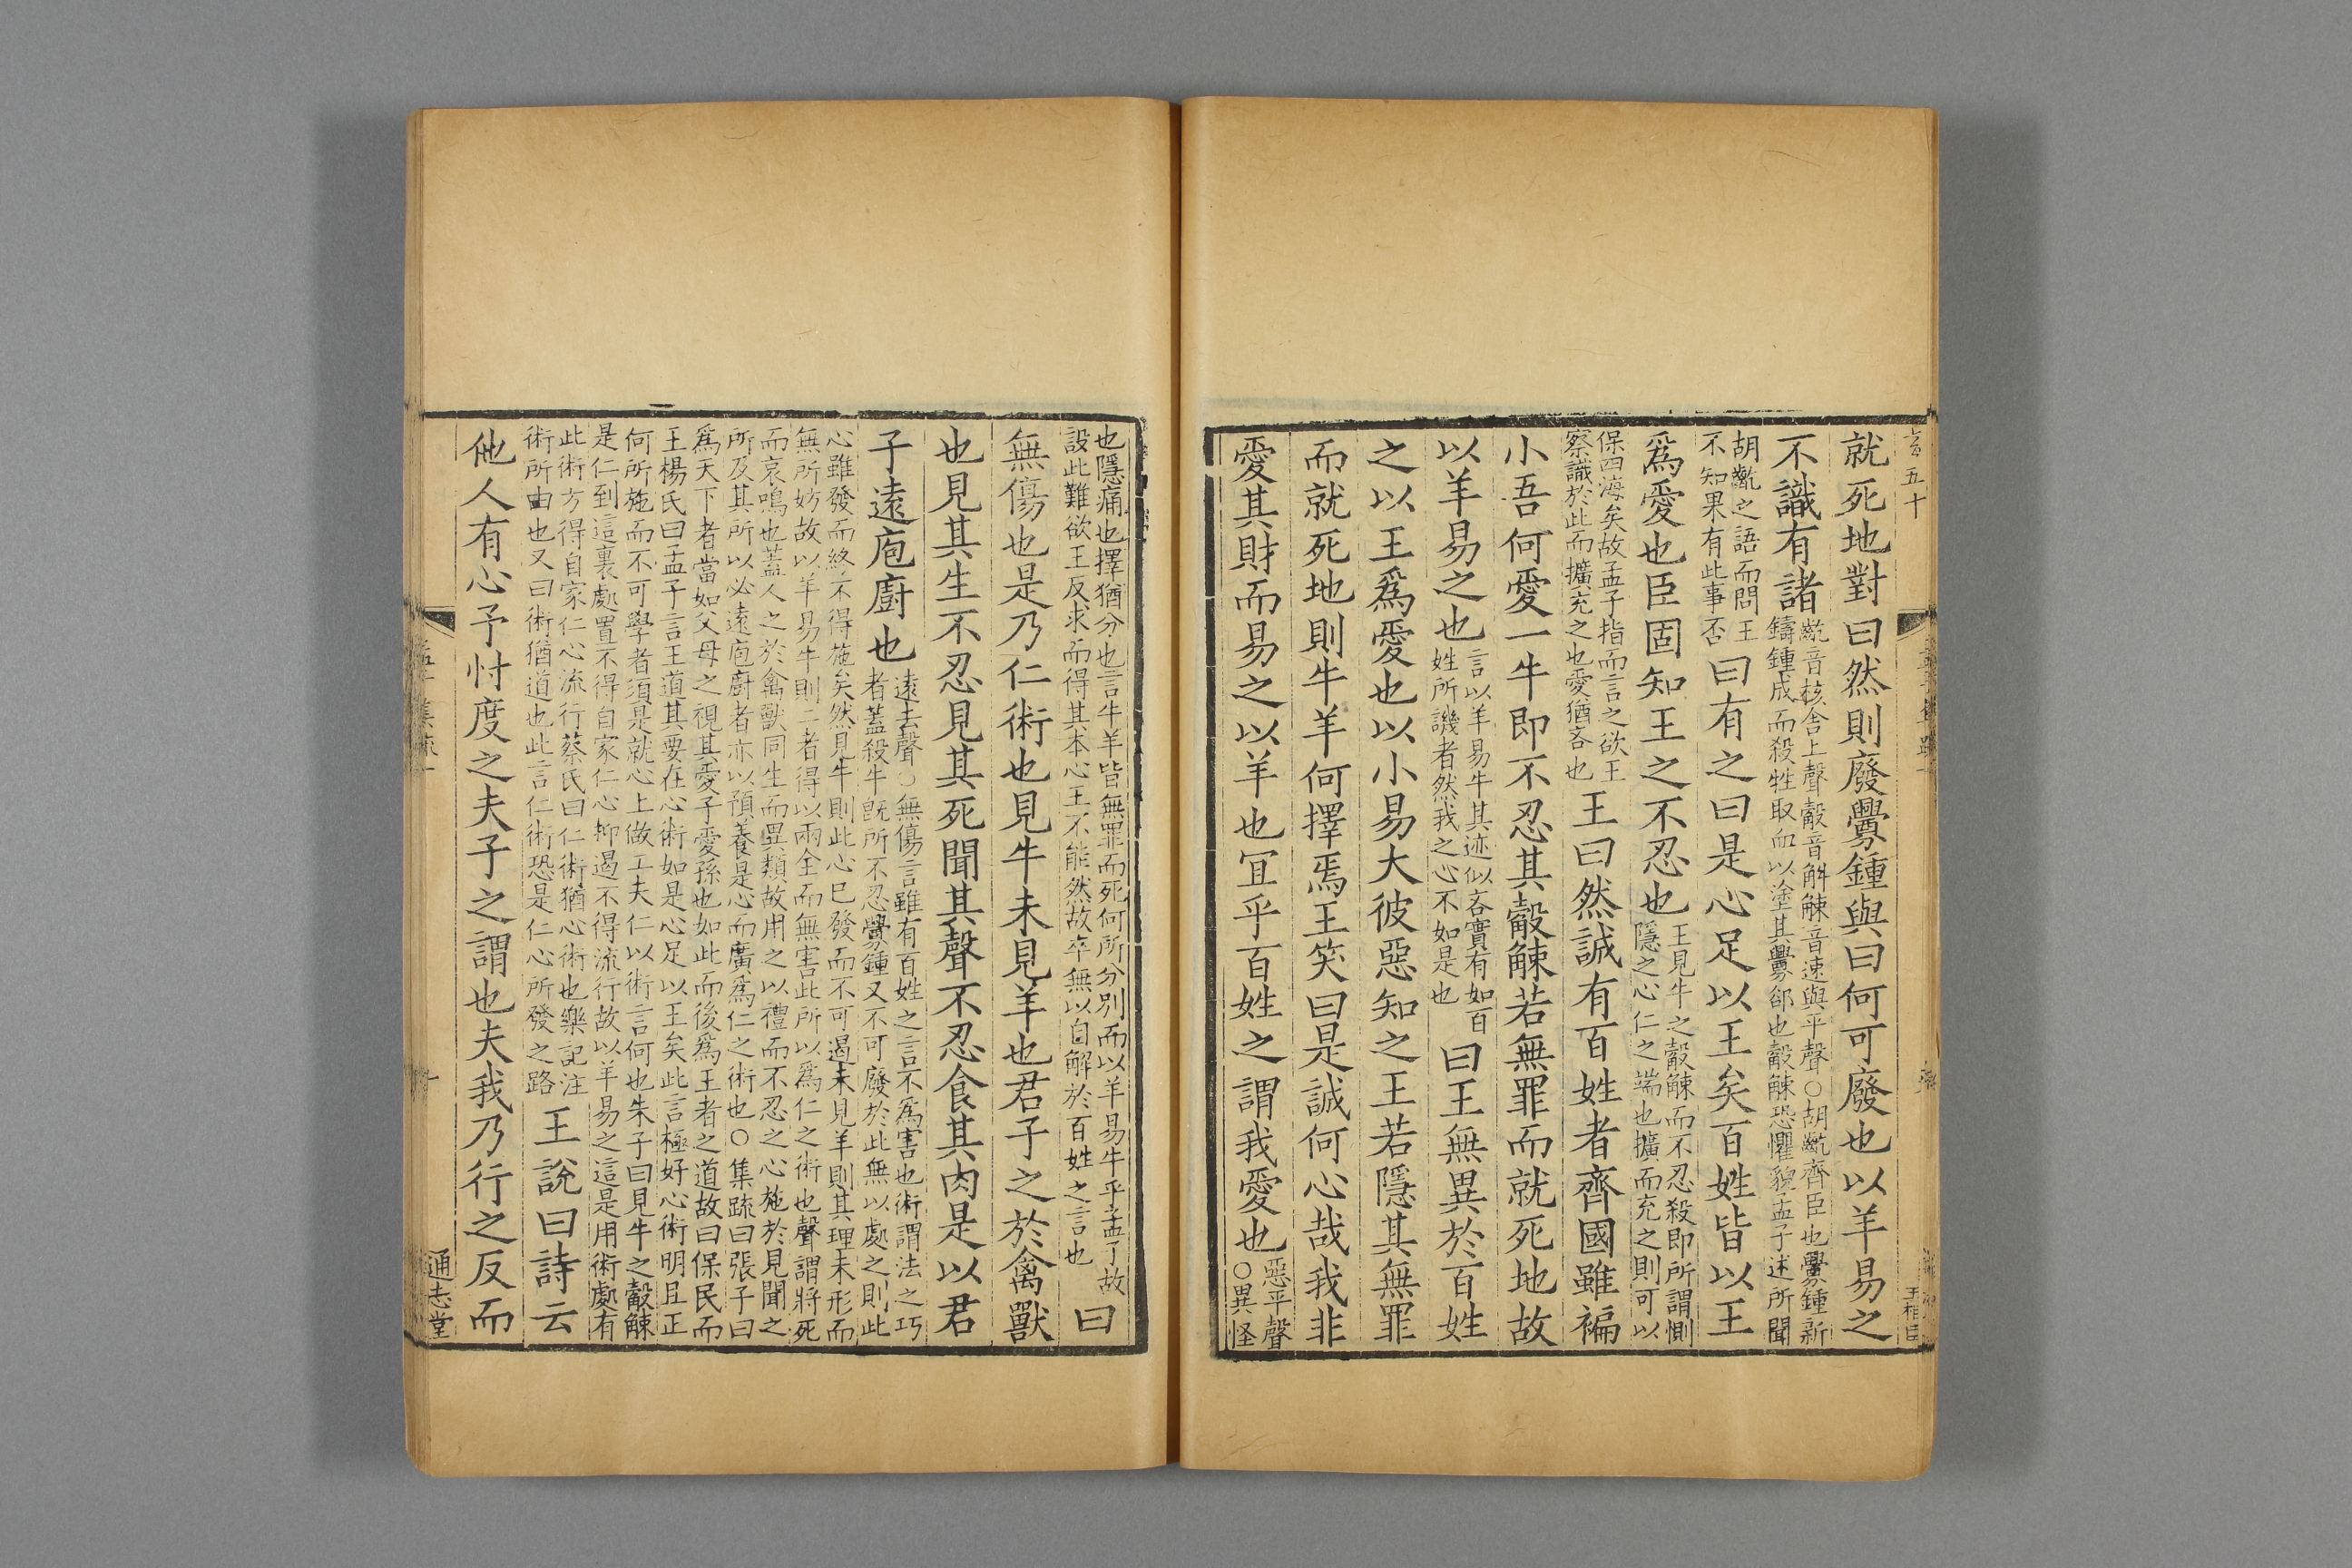 言五十
王相臣
就死地對曰然則廢釁鍾與曰何可廢也以羊易之
不識有諸
齕音核舍上聲觳音斛觫音速與平聲○胡齕齊臣也釁鍾新
鑄鍾成而殺牲取血以塗其釁郤也觳觫恐懼貌孟子述所聞
胡齕之語而問王
不知果有此事否
曰有之曰是心足以王矣百姓皆以王
爲愛也臣固知王之不忍也
王見牛之觳觫而不忍殺即所謂惻
隱之心仁之端也擴而充之則可以
保四海矣故孟子指而言之欲王
察識於此而擴充之也愛猶吝也
王曰然誠有百姓者齊國雖褊
小吾何愛一牛即不忍其觳觫若無罪而就死地故
以羊易之也
言以羊易牛其迹似吝實有如百
姓所譏者然我之心不如是也
曰王無異於百姓
之以王爲愛也以小易大彼惡知之王若隱其無罪
而就死地則牛羊何擇焉王笑曰是誠何心哉我非
愛其財而易之以羊也宜乎百姓之謂我愛也
惡平聲
○異怪
也隱痛也擇猶分也言牛羊皆無罪而死何所分別而以羊易牛乎孟子故
設此難欲王反求而得其本心王不能然故卒無以自解於百姓之言也
曰
無傷也是乃仁術也見牛未見羊也君子之於禽獸
也見其生不忍見其死聞其聲不忍食其肉是以君
子遠庖廚也
遠去聲○無傷言雖有百姓之言不爲害也術謂法之巧
者蓋殺牛旣所不忍釁鍾又不可廢於此無以處之則此
心雖發而終不得施矣然見牛則此心已發而不可遏未見羊則其理未形而
無所妨故以羊易牛則二者得以兩全而無害此所以爲仁之術也聲謂將死
而哀鳴也蓋人之於禽獸同生而異類故用之以禮而不忍之心施於見聞之
所及其所以必遠庖廚者亦以預養是心而廣爲仁之術也○集疏曰張子曰
爲天下者當如父母之視其愛子愛孫也如此而後爲王者之道故曰保民而
王楊氏曰孟子言王道其要在心術如是心足以王矣此言極好心術明且正
何所施而不可學者須是就心上做工夫仁以術言何也朱子曰見牛之觳觫
是仁到這裏處置不得自家仁心抑遏不得流行故以羊易之這是用術處有
此術方得自家仁心流行蔡氏曰仁術猶心術也樂記注
術所由也又曰術猶道也此言仁術恐是仁心所發之路
王說曰詩云
他人有心予忖度之夫子之謂也夫我乃行之反而
孟子集疏一
十
通志堂